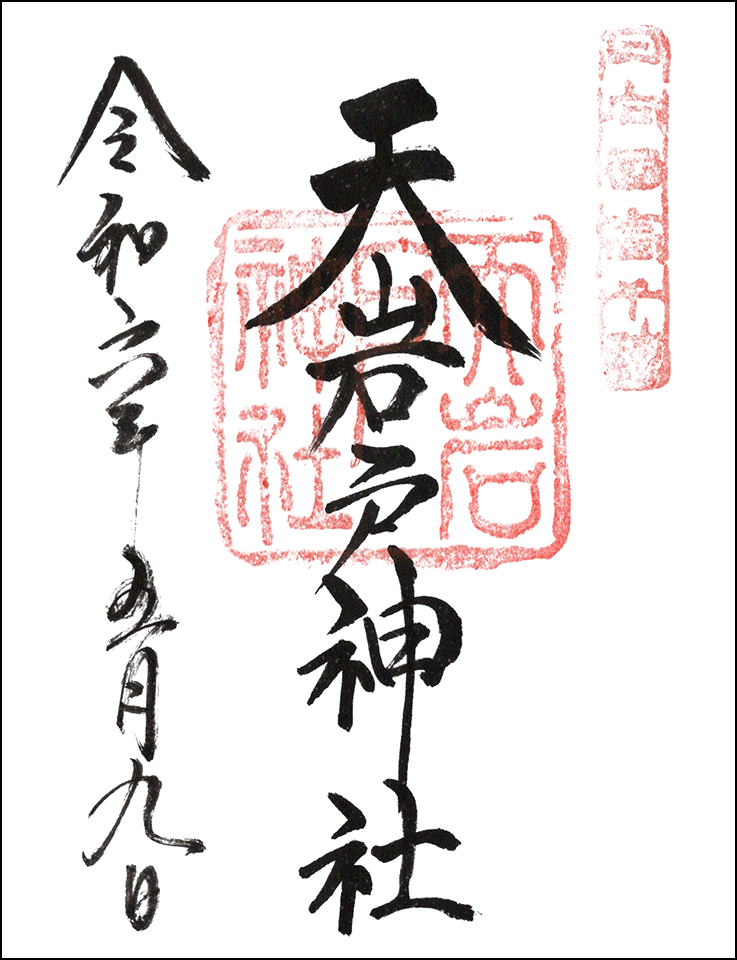 日向国高千穂
天岩戸神社
天岩
戸
神社
令和六年五月九日